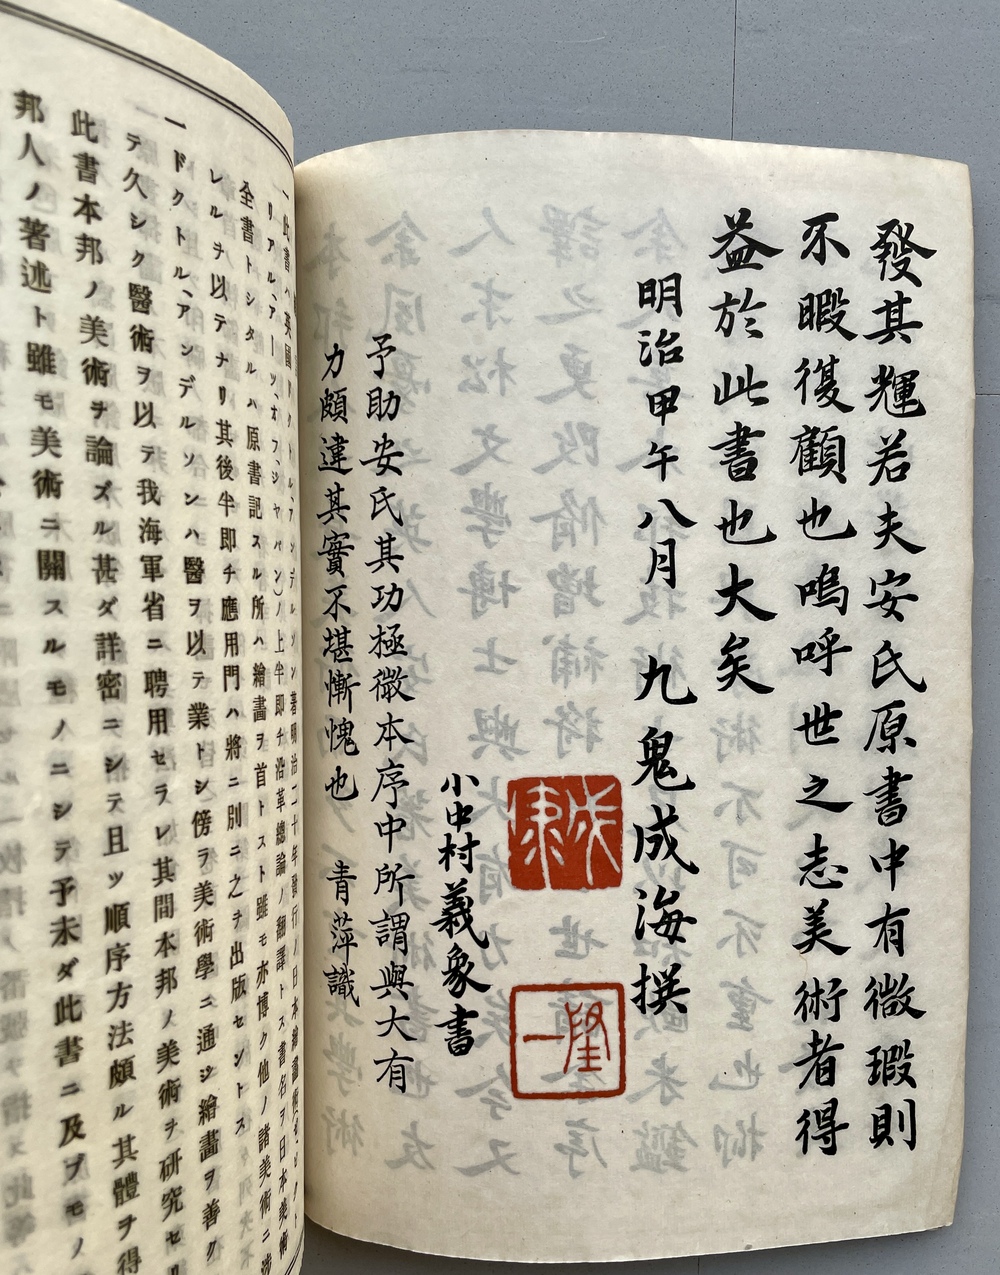 發其輝若夫安氏原書中有微瑕則
不暇復顧也嗚呼世之志美術者得
益於此書也大矣
明治甲午八月 九鬼成海撰
小中村義象書
予助安氏其功極微本序中所謂與大有
力頗違其實不堪慚愧也 青萍識
一此書ハ英國ドクトル、アンデルソン著明治二十年發行ノ日本繪畫術
リアル、アーツ、オフ、ジヤパン)ノ上半即チ沿革總論ノ翻譯トス書名ヲ日本美術
全書トシタルハ原書記スル所ハ繪畫ヲ首トスト雖モ亦博ク他ノ諸美術ニ涉
レルヲ以テナリ其後半即チ應用門ハ將ニ別ニ之ヲ出版セントス
一ドクトル、アンデルソンハ醫ヲ以テ業トシ傍ラ美術學ニ通シ繪畫ヲ善ク
テ久シク醫術ヲ以テ我海軍省ニ聘用セラレ其間本邦ノ美術ヲ研究セリ
此書本邦ノ美術ヲ論ズル甚ダ詳密ニシテ且ツ順序方法頗ル其體ヲ得
邦人ノ著述ト雖モ美術ニ關スルモノニシテ予未ダ此書ニ及ブモノ